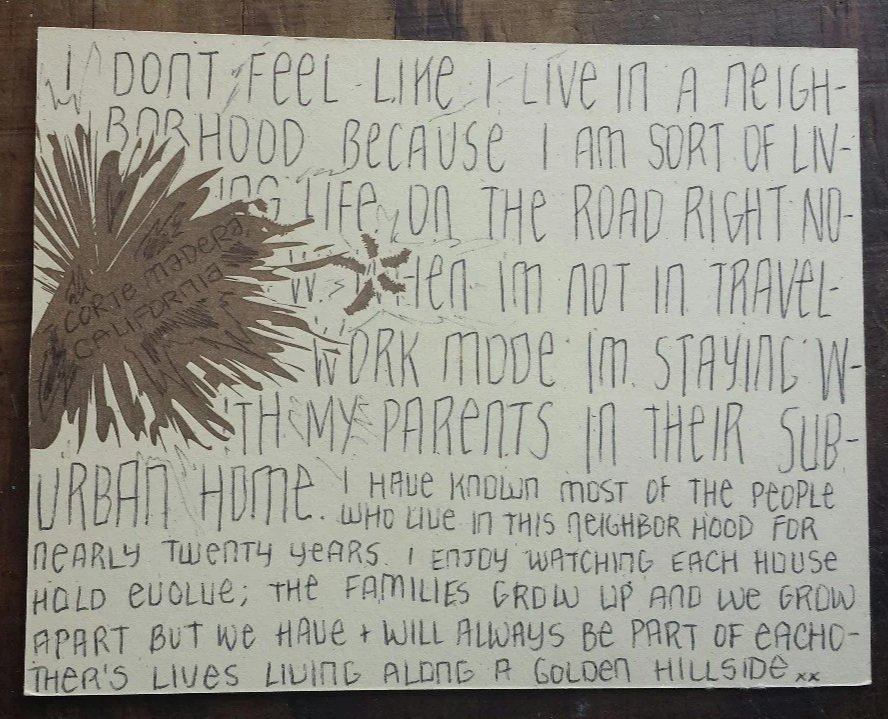 I DONT FEEL LIKE I LIVE IN A NEIGH-
BORHOOD BECAUSE I AM SORT OF LIV-
ING LIFE ON THE ROAD RIGHT NO-
W. WHEN IM NOT IN TRAVEL-
WORK MODE IM STAYING W-
ITH MY PARENTS IN THEIR SUB-
URBAN HOME. I HAVE KNOWN MOST OF THE PEOPLE
WHO LIVE IN THIS NEIGHBOR HOOD FOR
NEARLY TWENTY YEARS. I ENJOY WATCHING EACH HOUSE
HOLD EVOLVE; THE FAMILIES GROW UP AND WE GROW
APART BUT WE HAVE + WILL ALWAYS BE PART OF EACHO-
THER'S LIVES LIVING ALONG A GOLDEN HILLSIDE xx
CORTE MADERA,
CALIFORNIA